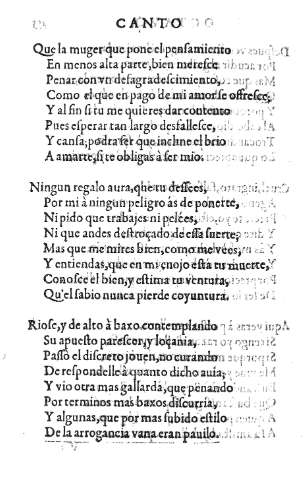 CANTO
Que la muger que pone el pensamiento
En menos alta parte, bien meresce
Penar con vn desagradescimiento,
Como el que en pago de mi amor se offresce,
Y al fin si tu me quieres dar contento
Pues esperar tan largo desfallesce,
Y cansa, podra ser que incline el brio
A amarte, si te obligas à ser mio.
Ningun regalo aura, que tu dessees,
Por mi à ningun peligro às de ponerte,
Ni pido que trabajes ni pelées,
Ni que andes destroçado de essa suerte,
Mas que me mires bien, como me vées,
Y entiendas, que en mi enojo esta tu muerte,
Conosce el bien, y estima tu ventura,
Qu'el sabio nunca pierde coyuntura.
Riose, y de alto à baxo contemplando
Su apuesto parescer, y loçania,
Passò el discreto jouen, no curando
De respondelle à quanto dicho auia,
Y vio otra mas gallarda, que penando
Por terminos mas baxos discurria,
Y algunas, que por mas subido estilo
De la arrogancia vana eran pauilo.